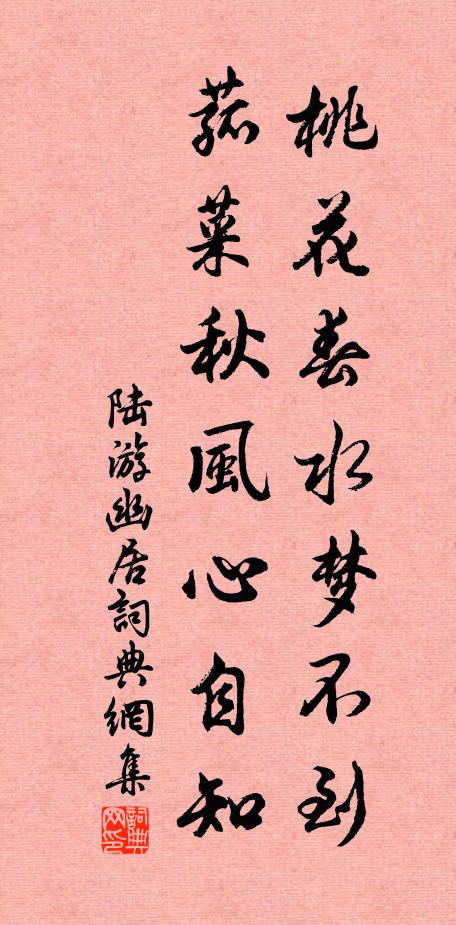 桃花春水梦不到
菰菜秋風心自知
陆游幽居詞典網集
詞典网印